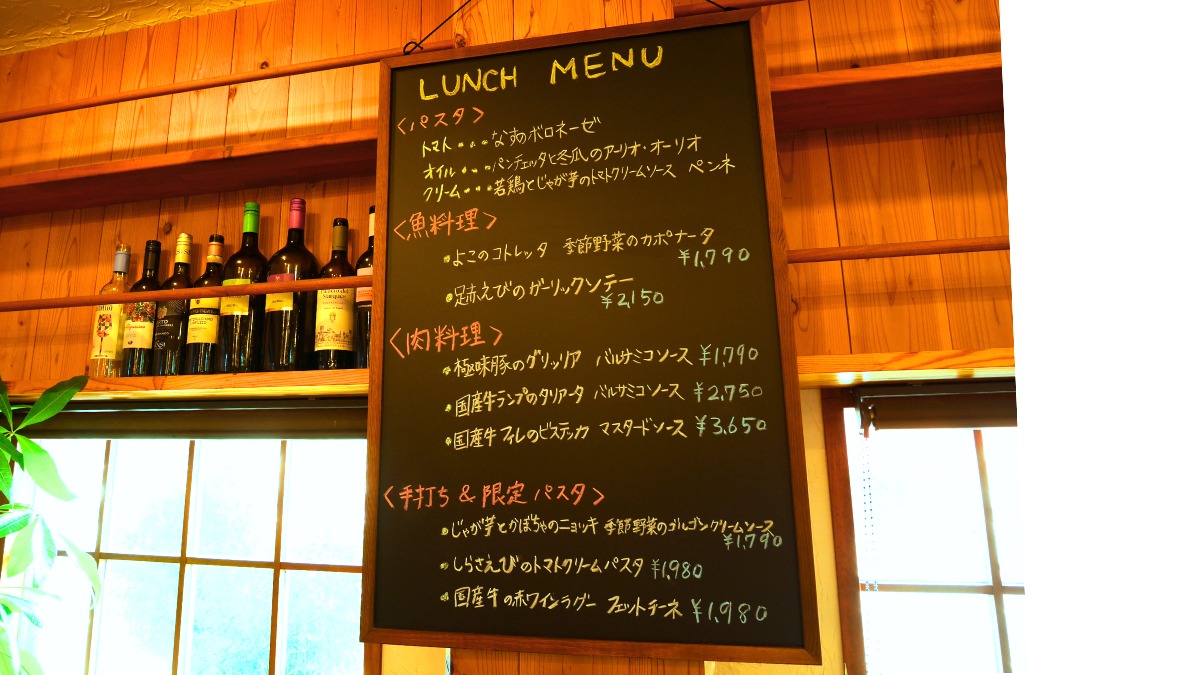 LUNCH MENU
〈パスタ〉
トマト・・・なすのボロネーゼ
オイル・・・パンチェッタと冬瓜のアーリオ・オーリオ
クリーム・・・若鶏とじゃが芋のトマトクリームソース ペンネ
〈魚料理〉
・よこのコトレッタ 季節野菜のカポナータ
¥1,790
・足赤えびのガーリックソテー
¥2,150
〈肉料理〉
・極味豚のグリッリア バルサミコソース ¥1,790
・国産牛ランプのタリアータ バルサミコソース ¥2,750
・国産牛フィレのビステッカ マスタードソース ¥3,650
〈手打ち & 限定 パスタ〉
・じゃが芋とかぼちゃのニョッキ 季節野菜のゴルゴンクリームソース
¥1,790
・しらさえびのトマトクリームパスタ ¥1,980
・国産牛の赤ワインラグー フェットチーネ ¥1,980